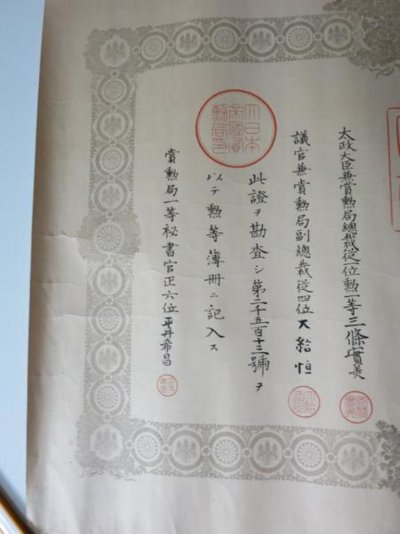 太政大臣兼賞勲局總裁從一位勲一等三條實美
議官兼賞勲局副總裁從四位大給恒
大日本
此證ヲ勘査シ第二千五百十三號ヲ
以テ勲等簿冊ニ記入ス
賞勲局一等秘書官正六位平井希昌